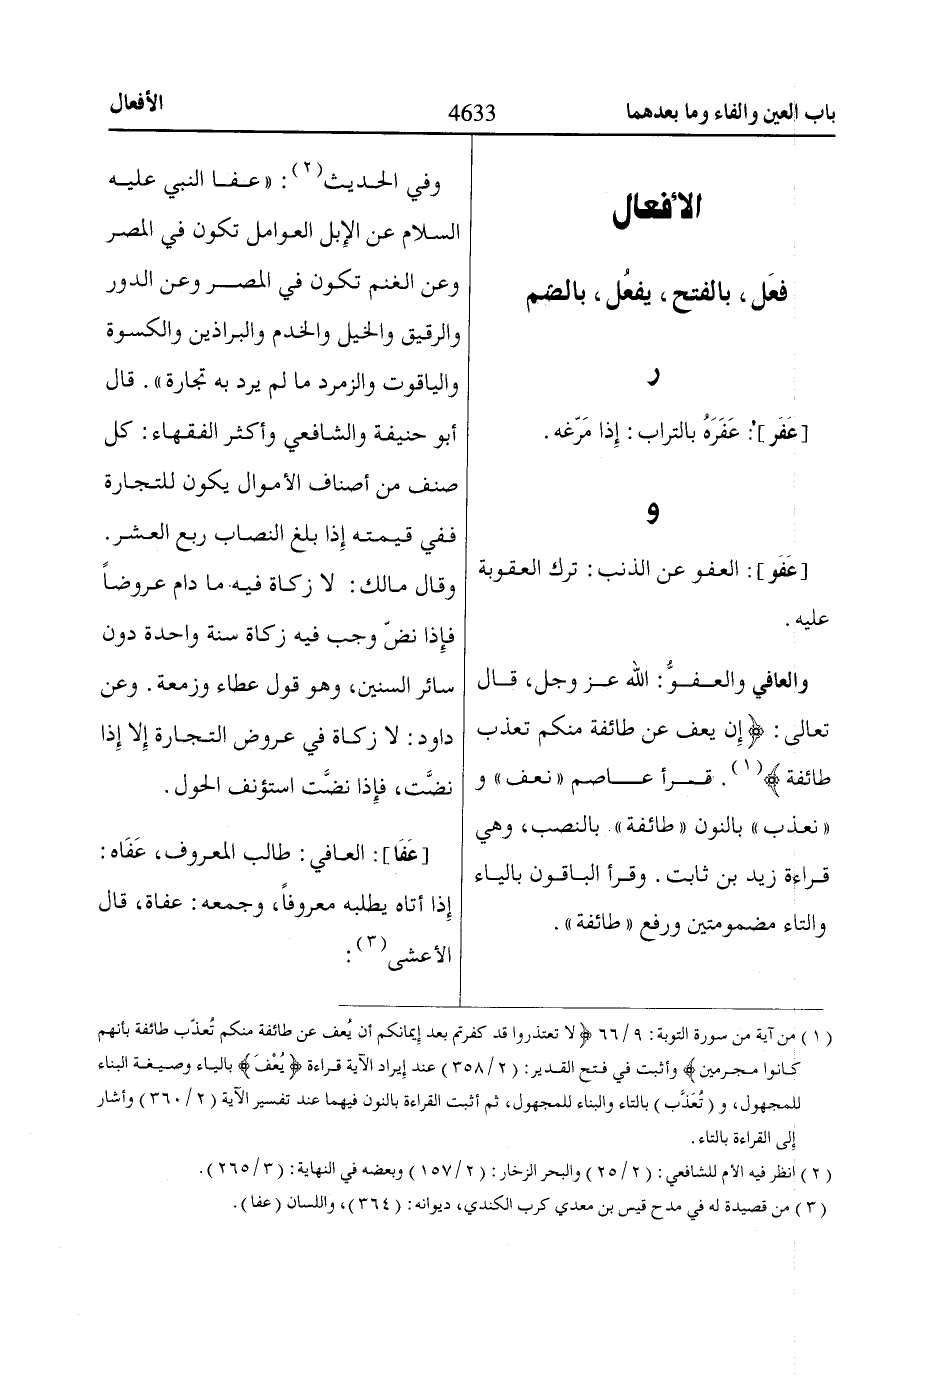 باب العين والفاء وما بعدهما
4633
الأفعال
الأفعال
فعَل، بالفتح، يفعُل، بالضم
ر
[عَفَر]: عَفَرَهُ بالتراب: إذا مَرّغه.
و
[عَفَو]: العفو عن الذنب: ترك العقوبة
عليه.
والعافي والعفوُّ: الله عز وجل، قال
تعالى: ﴿إن يعف عن طائفة منكم تعذب
طائفة﴾(١). قرأ عاصم «نعف» و
«نعذب» بالنون «طائفة» بالنصب، وهي
قراءة زيد بن ثابت. وقرأ الباقون بالياء
والتاء مضمومتين ورفع «طائفة».
وفي الحديث(٢): «عفا النبي عليه
السلام عن الإبل العوامل تكون في المصر
وعن الغنم تكون في المصر وعن الدور
والرقيق والخيل والخدم والبراذين والكسوة
والياقوت والزمرد ما لم يرد به تجارة». قال
أبو حنيفة والشافعي وأكثر الفقهاء: كل
صنف من أصناف الأموال يكون للتجارة
ففي قيمته إذا بلغ النصاب ربع العشر.
وقال مالك: لا زكاة فيه ما دام عروضاً
فإذا نضّ وجب فيه زكاة سنة واحدة دون
سائر السنين، وهو قول عطاء وزمعة. وعن
داود: لا زكاة في عروض التجارة إلا إذا
نضَّت، فإذا نضَّت استؤنف الحول.
[عَفَا]: العافي: طالب المعروف، عَفَاه:
إذا أتاه يطلبه معروفاً، وجمعه: عفاة، قال
الأعشى(٣):
(١) من آية من سورة التوبة: ٩/ ٦٦ ﴿لا تعتذروا قد كفرتم بعد إيمانكم أن يُعف عن طائفة منكم تُعذّب طائفة بأنهم
كانوا مجرمين﴾ وأثبت في فتح القدير: (٢/ ٣٥٨) عند إيراد الآية قراءة ﴿يُعْفَ﴾ بالياء وصيغة البناء
للمجهول، و (تُعَذَّب) بالتاء والبناء للمجهول، ثم أثبت القراءة بالنون فيهما عند تفسير الآية (٢/ ٣٦٠) وأشار
إلى القراءة بالتاء.
(٢) انظر فيه الأم للشافعي: (٢/ ٢٥) والبحر الزخار: (٢/ ١٥٧) وبعضه في النهاية: (٣/ ٢٦٥).
(٣) من قصيدة له في مدح قيس بن معدي كرب الكندي، ديوانه: (٣٦٤)، واللسان (عفا).